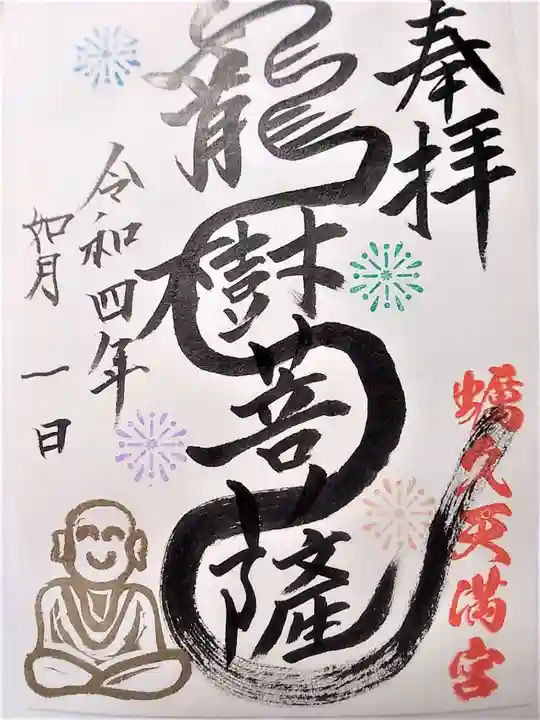 奉拝
龍樹菩薩
令和四年
如月一日
蠣久天満宮